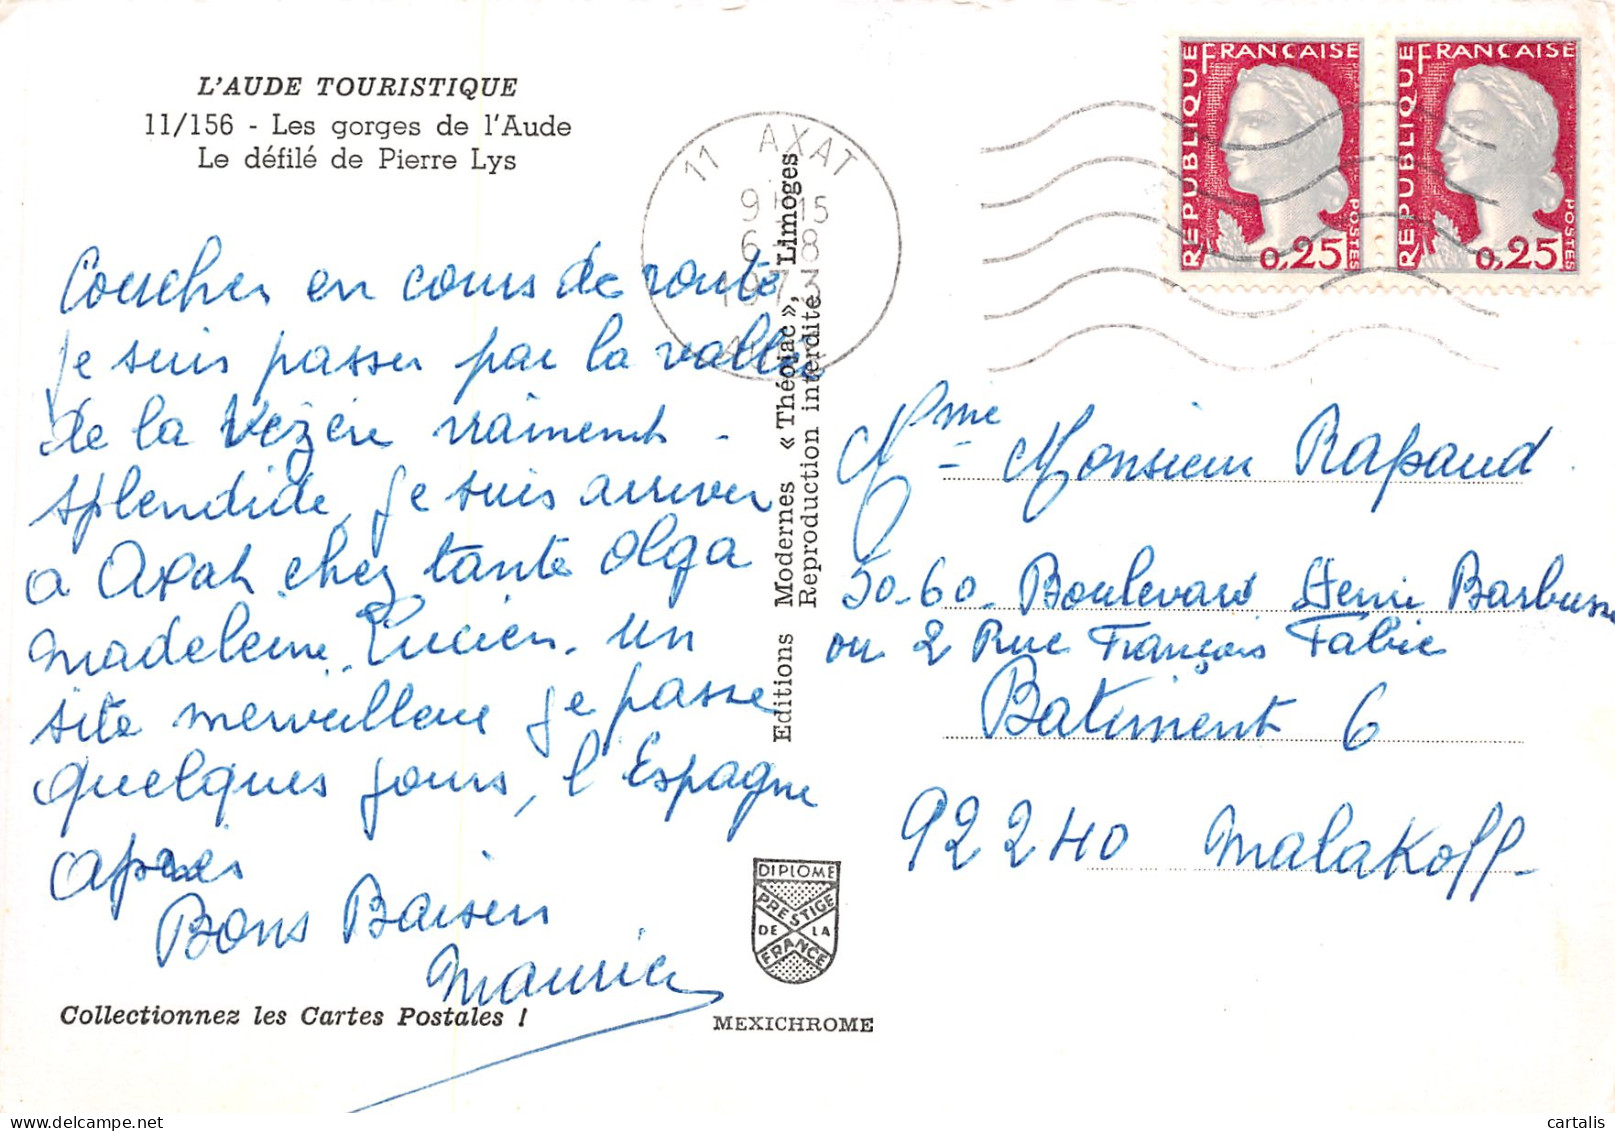 L'AUDE TOURISTIQUE
11/156 - Les gorges de l'Aude
Le défilé de Pierre Lys
Coucher en cours de route
je suis passer par la vallée
de la Vézère vraiment
splendide, je suis arriver
a Axat chez tante Olga
Madeleine, Lucien. un
site merveilleux je passe
quelques jours, l'Espagne
après
Bons Baisers
Maurice
Collectionnez les Cartes Postales !
11 AXAT
9H15
6-8
1973
Editions Modernes « Théojac », Limoges
Reproduction interdite
DIPLOME
PRESTIGE
DE LA
FRANCE
MEXICHROME
REPUBLIQUE FRANCAISE
0,25 POSTES
REPUBLIQUE FRANCAISE
0,25 POSTES
Mme Monsieur Rapaud
50-60 Boulevard Henri Barbusse
ou 2 Rue François Fabie
Batiment 6
92240 Malakoff
cartalis
www.delcampe.net